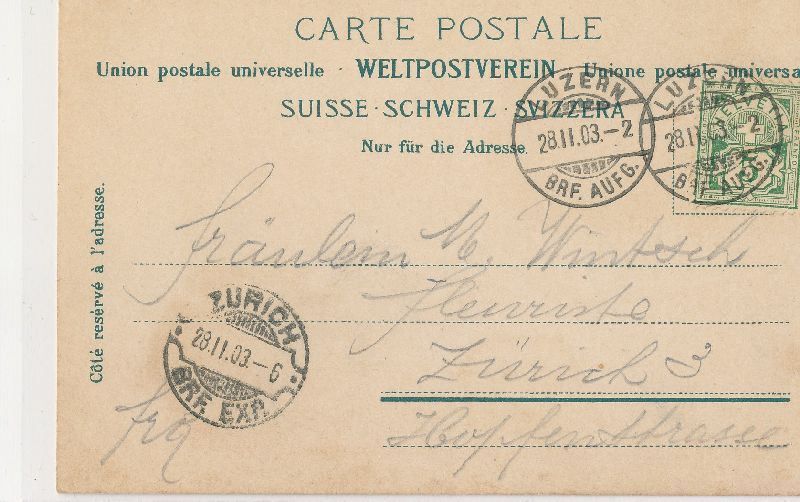 CARTE POSTALE
Union postale universelle · WELTPOSTVEREIN · Unione postale universa
SUISSE · SCHWEIZ · SVIZZERA
Nur für die Adresse.
LUZERN
28.II.03.–2
BRF. AUFG.
LUZERN
28.II.03.–2
BRF. AUFG.
HELVETIA
5
Côté reservé à l'adresse.
Fräulein M. Wintsch
Fleuriste
Zürich 3
Hopfenstrasse
ZÜRICH
28.II.03.–6
BRF. EXP.